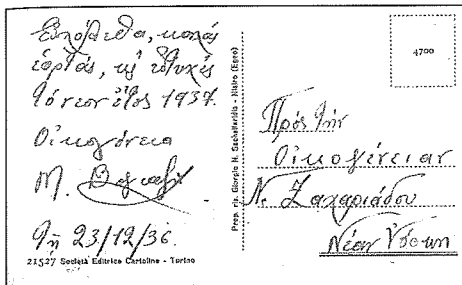 ἑορτάς, κι εὐτυχές
τό νέον ἔτος 1937.
Οἰκογένεια
Μ.
Τῇ 23/12/36.
21527 Società Editrice Cartoline - Torino
Prop. ris. Giorgio N. Sachellaridis - Nisiro (Egeo)
4700
Πρός τήν
Οἰκογένειαν
Ν. Ζαχαριάδου